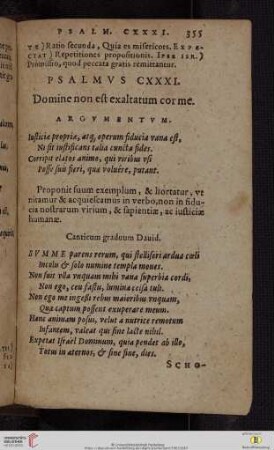 PSALM. CXXXI. 355
VE) Ratio secunda, Quia es misericors. EXPE-
CTAT) Repetitiones propositionis. IPSE ISR.)
Promissio, quod peccata gratis remittantur.
PSALMVS CXXXI.
Domine non est exaltatum cor me.
ARGVMENTVM.
Iusticiæ propriæ, atq; operum fiducia vana est,
Ni sit iustificans talia cuncta fides.
Corripit elatos animo, qui viribus vsi
Posse suis fieri, quæ voluêre, putant.
Proponit suum exemplum, & hortatur, vt
nitamur & acquiescamus in verbo, non in fidu-
cia nostrarum virium, & sapientiæ, ac iusticiæ
humanæ.
Canticum graduum Dauid.
SVMME parens rerum, qui stelliferi ardua cœli
Incolis & solo numine templa moues.
Non fuit vlla vnquam mihi vana superbia cordi,
Non ego, ceu fastu, lumina celsa tuli.
Non ego me ingessi rebus maioribus vnquam,
Quæ captum possent exuperare meum.
Hanc animam posui, velut a nutrice remotum
Infantem, valeat qui sine lacte nihil.
Expetat Israël Dominum, quia pendet ab illo,
Totus in æternos, & sine fine, dies.
SCHO-